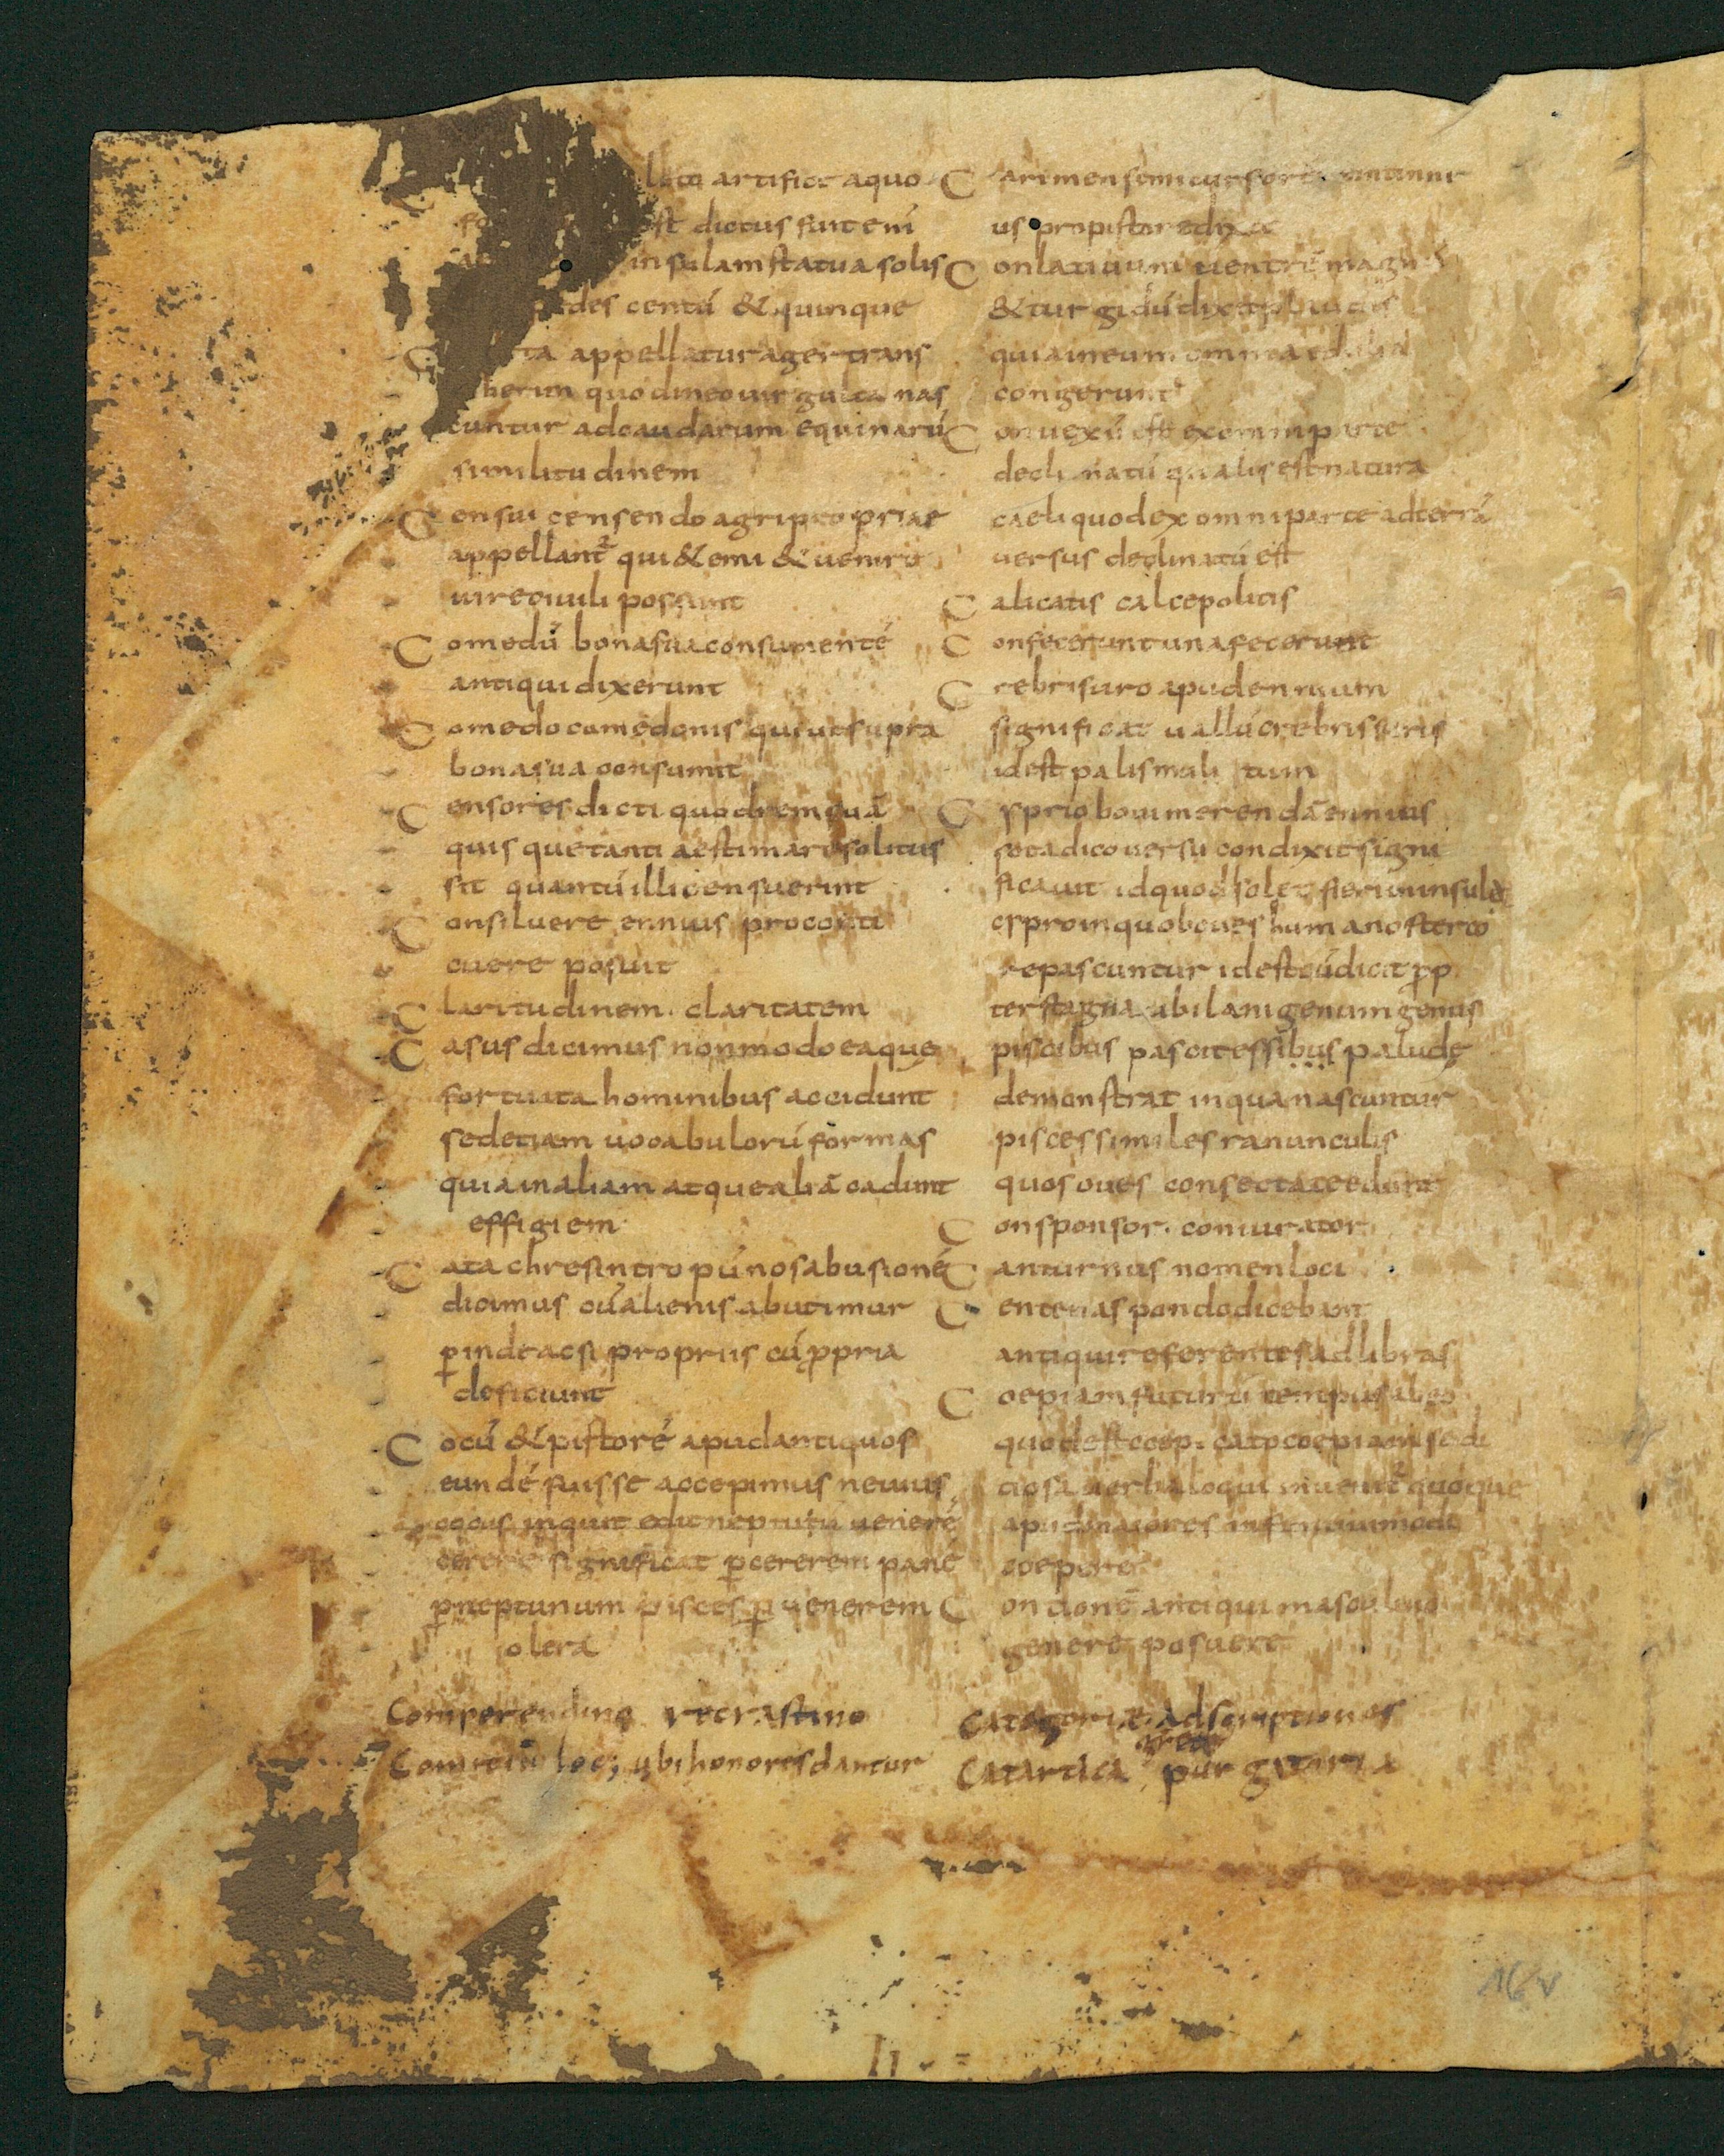 artifice aquo
dictus fuit enī
insulam statua solis
des centū & quinque
ta appellatur ager trans
berim quod in eo uirgulta nas
cuntur ad caudarum equinarū
similitudinem
Censui censendo agri propriae
appellant² qui & emi & uenire
iure ciuili possunt
Comedū bona sua consumentē
antiqui dixerunt
Comedo comedonis qui ut supra
bona sua consumit
Censores dicti quod rem suā
quisque tanti aestimare solitus
sit quantū illi censuerint
Consiluere ennius pro conti
cuere posuit
Claritudinem. claritatem
Casus dicimus non modo ea que
fortuita hominibus accidunt
sed etiam uocabulorū formas
quia in aliam atque aliā cadunt
effigiem
Catachresin tropū nos abusionē
dicimus cū alienis abutimur
ꝑinde ac si propriis cū ꝓpria
deficiunt
Cocū & pistorē apud antiquos
eundē fuisse accepimus neuius
cocus inquit edit neptunū uenerē
cererē significat ꝑ cererem panē
ꝑ neptunum pisces ꝑ uenerem
olera
Comperendino recrastino
Comitiū loc; ubi honores dantur
us pro pistore dixit
Conlatiuum uentrē magnū
& turgidū dixit plautus
quia in eum omnia edulia
congerunt
Conuexū est ex omni parte
declinatū qualis est natura
caeli quod ex omni parte ad terrā
uersus declinatū est
Calicatis calce politis
Confecerunt una fecerunt
Crebrisuro apud ennium
significat uallū crebris suris
id est palis munitum
Cyprio boui merendā ennius
sotadico uersu cum dixit signi
ficauit id quod solet fieri in insula
cypro in quo boues humano sterco
re pascuntur
ter stagna ubi lanigerum genus
piscibus pascit essibus paludē
demonstrat in qua nascuntur
pisces similes ranunculis
quos oues consectate edunt
Consponsor. coniurator
Canturnus nomen loci
Centenas pondo dicebant
antiqui referentes ad libras
Coepiam futurū tempus ab eo
quod est coepi. cato coepiam sedi
tiosa uerba loqui inuenit² quoque
apud maiores infinitiui modi
coepere
Contionē antiqui masculino
genere posuere
Categoriae adscriptiones
Catartica purgatoria
16v